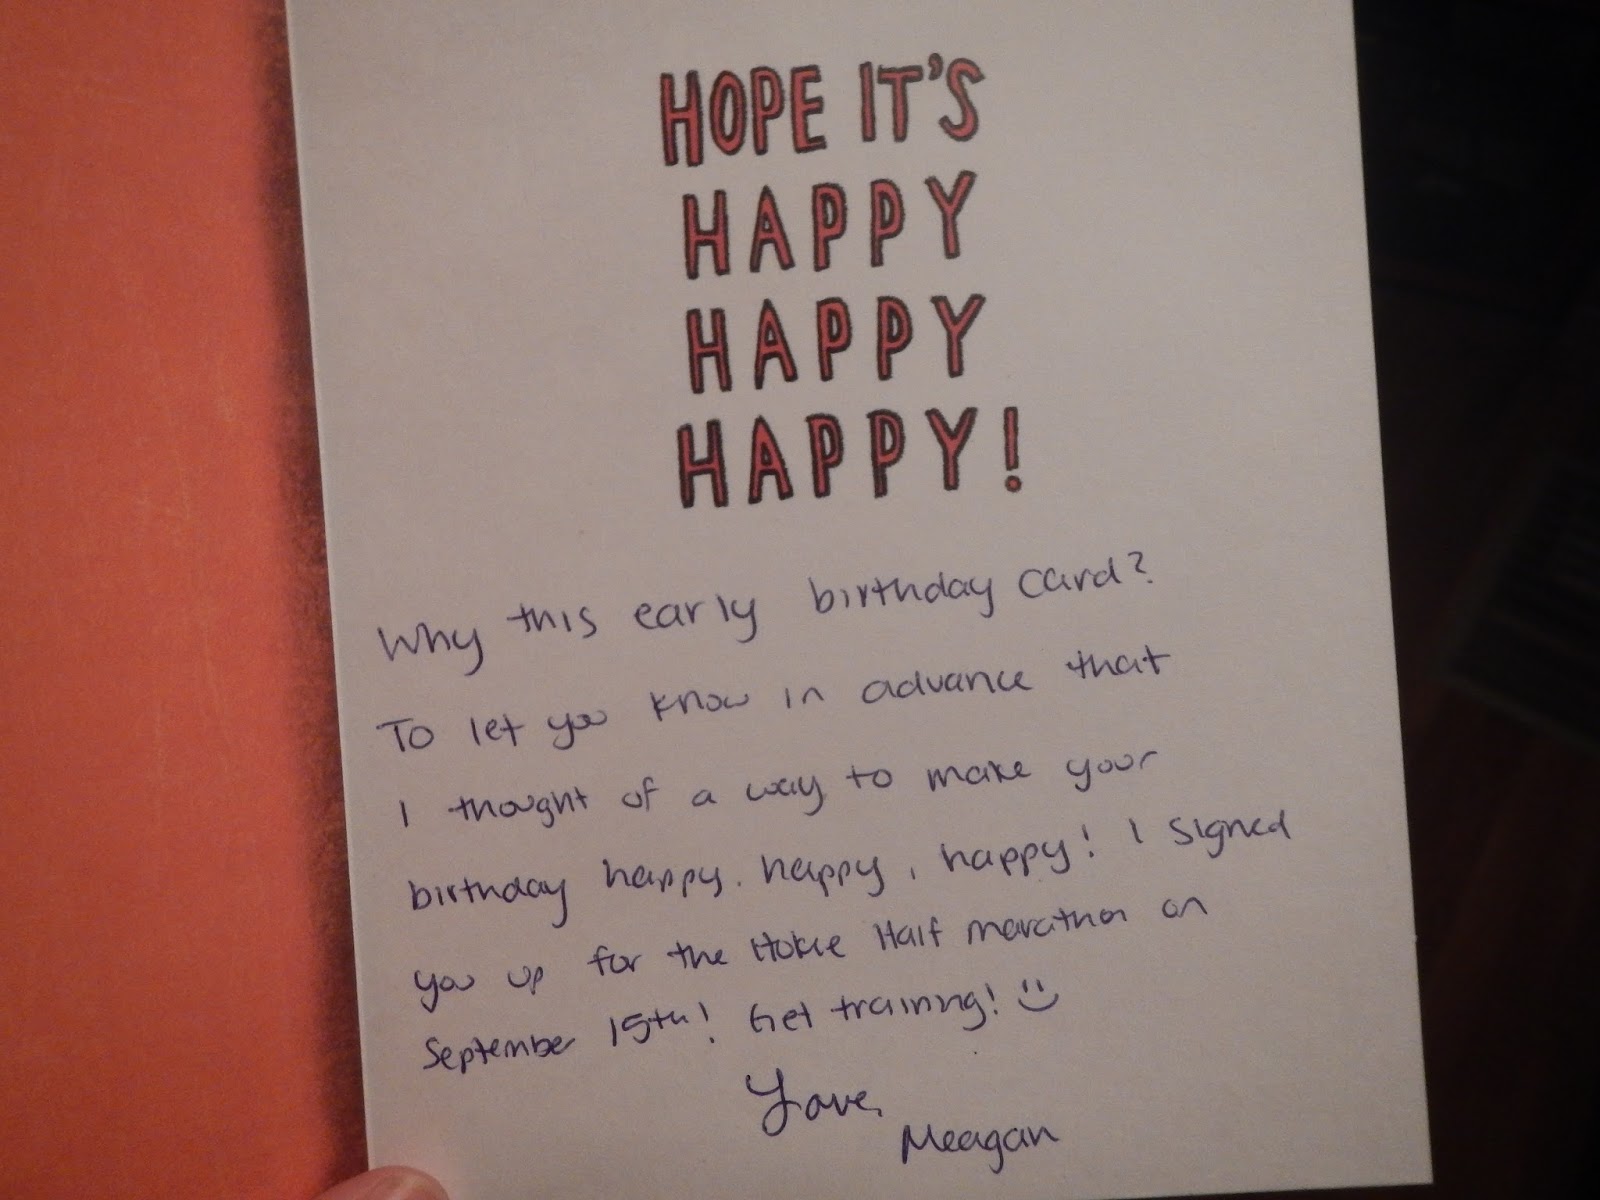 HOPE IT'S
HAPPY
HAPPY
HAPPY!
Why this early birthday card?
To let you know in advance that
I thought of a way to make your
birthday happy, happy, happy! I signed
you up for the Hokie Half marathon on
September 15th! Get training! :)
Love,
Meagan